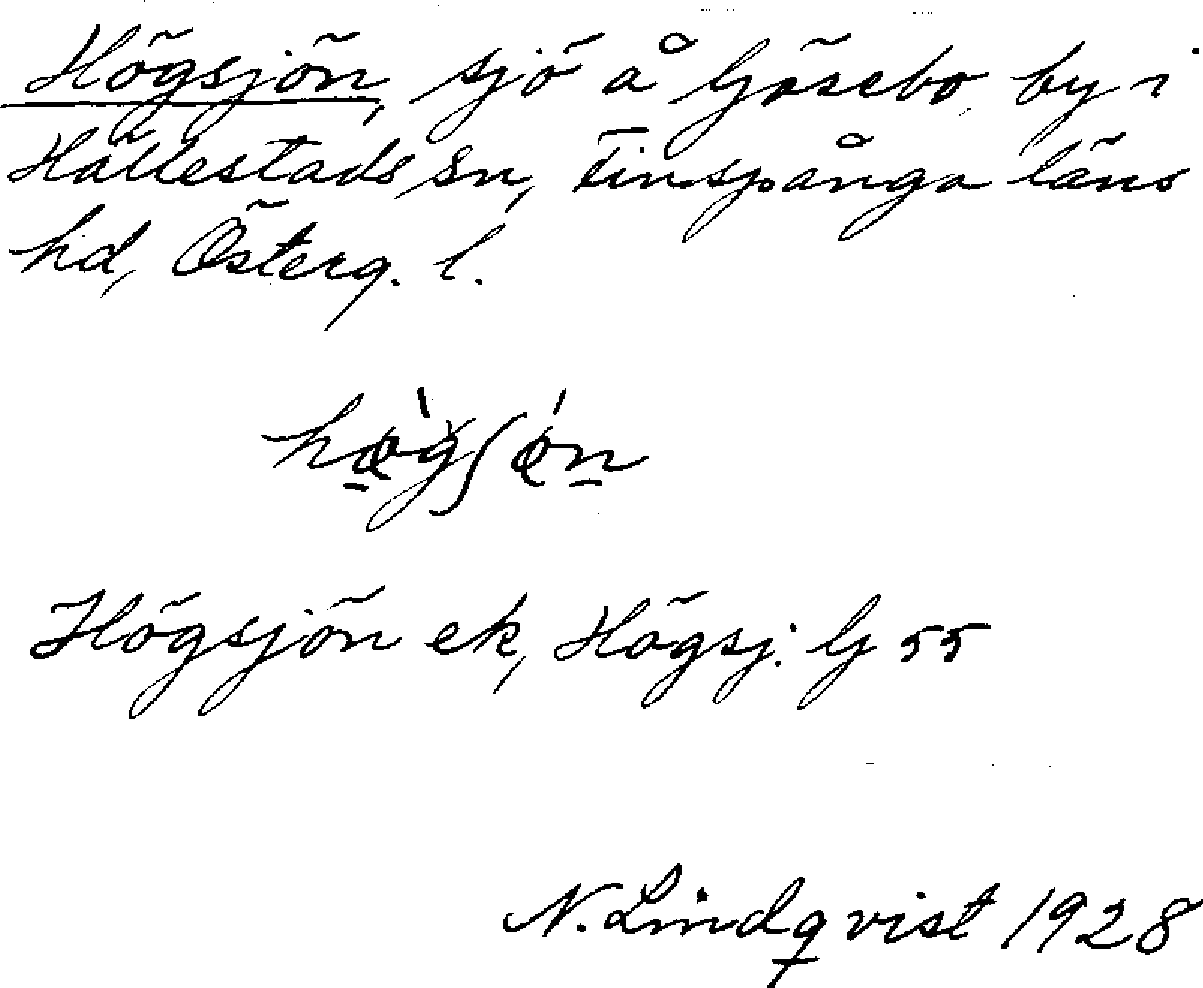 Högsjön, sjö å Gösebo, by i
Hällestads sn, Finspånga läns
hd, Österg. l.
Högsjön ek, Högsj. G 55
N. Lindqvist 1928